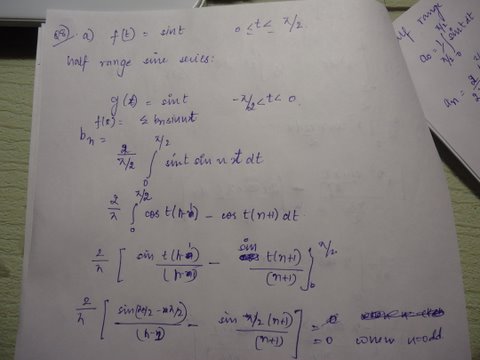 a) f(t) = sint 0 ≤ t ≤ π/2.
half range sine series:
g(t) = sint -π/2 < t < 0.
f(t) = Σ bn sin nt
bn = 2/(π/2) ∫₀^{π/2} sint sin nt dt
2/π ∫₀^{π/2} cos t(n-1) - cos t(n+1) dt.
2/π [ sin t(n-1)/(n-1) - sin t(n+1)/(n+1) ]₀^{π/2}
- sin π/2 (n+1)/(n+1) ] = 0 when n odd.
half range
a0 = 1/(π/2) ∫₀^{π/2} sint dt
an =